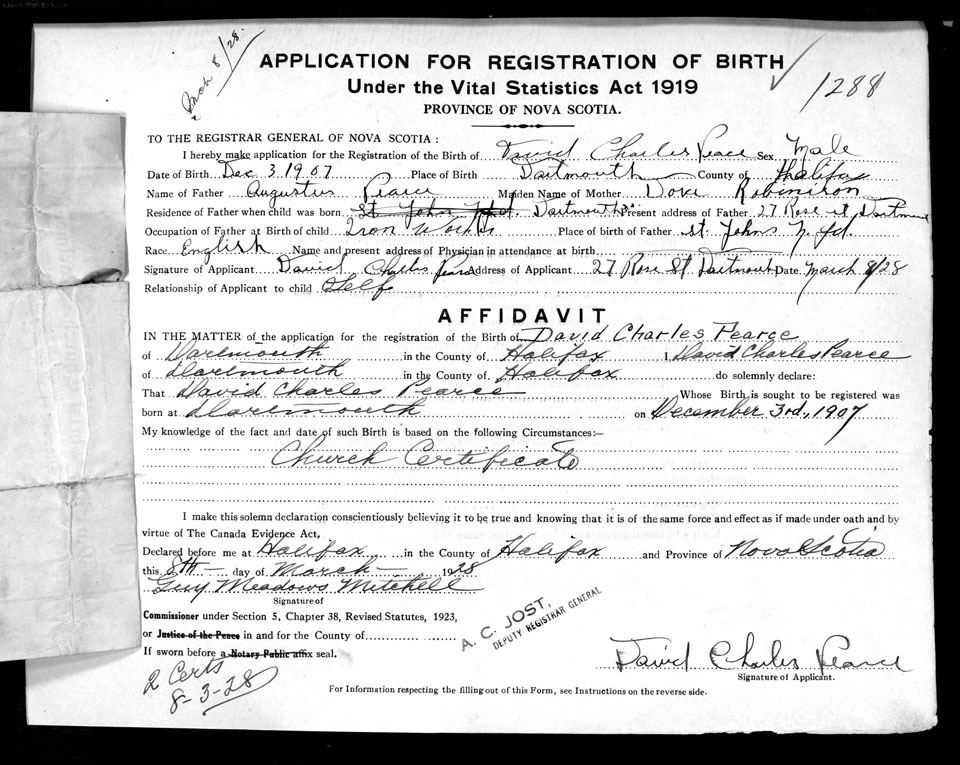 March 8/28.
APPLICATION FOR REGISTRATION OF BIRTH
1288
Under the Vital Statistics Act 1919
PROVINCE OF NOVA SCOTIA.
TO THE REGISTRAR GENERAL OF NOVA SCOTIA :
I hereby make application for the Registration of the Birth of David Charles Pearce Sex Male
Date of Birth Dec 3. 1907 Place of Birth Dartmouth County of Halifax
Name of Father Augustus Pearce Maiden Name of Mother Robinson
Residence of Father when child was born St. John Nfd. Dartmouth Present address of Father 27 Rose st Dartmouth
Occupation of Father at Birth of child Iron Works Place of birth of Father St. Johns N. fd.
Race English Name and present address of Physician in attendance at birth
Signature of Applicant David Charles Pearce Address of Applicant 27 Rose St Dartmouth Date March 8/28
Relationship of Applicant to child Self
AFFIDAVIT
IN THE MATTER of the application for the registration of the Birth of David Charles Pearce
of Dartmouth in the County of Halifax I, David Charles Pearce
of Dartmouth in the County of Halifax do solemnly declare:
That David Charles Pearce Whose Birth is sought to be registered was
born at Dartmouth on December 3rd, 1907
My knowledge of the fact and date of such Birth is based on the following Circumstances:—
Church Certificate
I make this solemn declaration conscientiously believing it to be true and knowing that it is of the same force and effect as if made under oath and by
virtue of The Canada Evidence Act,
Declared before me at Halifax in the County of Halifax and Province of Nova Scotia
this 8th day of March 1928
Guy Meadows Mitchell
Signature of
Commissioner under Section 5, Chapter 38, Revised Statutes, 1923,
or Justice of the Peace in and for the County of
If sworn before a Notary Public affix seal.
A. C. JOST,
DEPUTY REGISTRAR GENERAL
David Charles Pearce
Signature of Applicant.
2 Certs
8-3-28
For Information respecting the filling out of this Form, see Instructions on the reverse side.